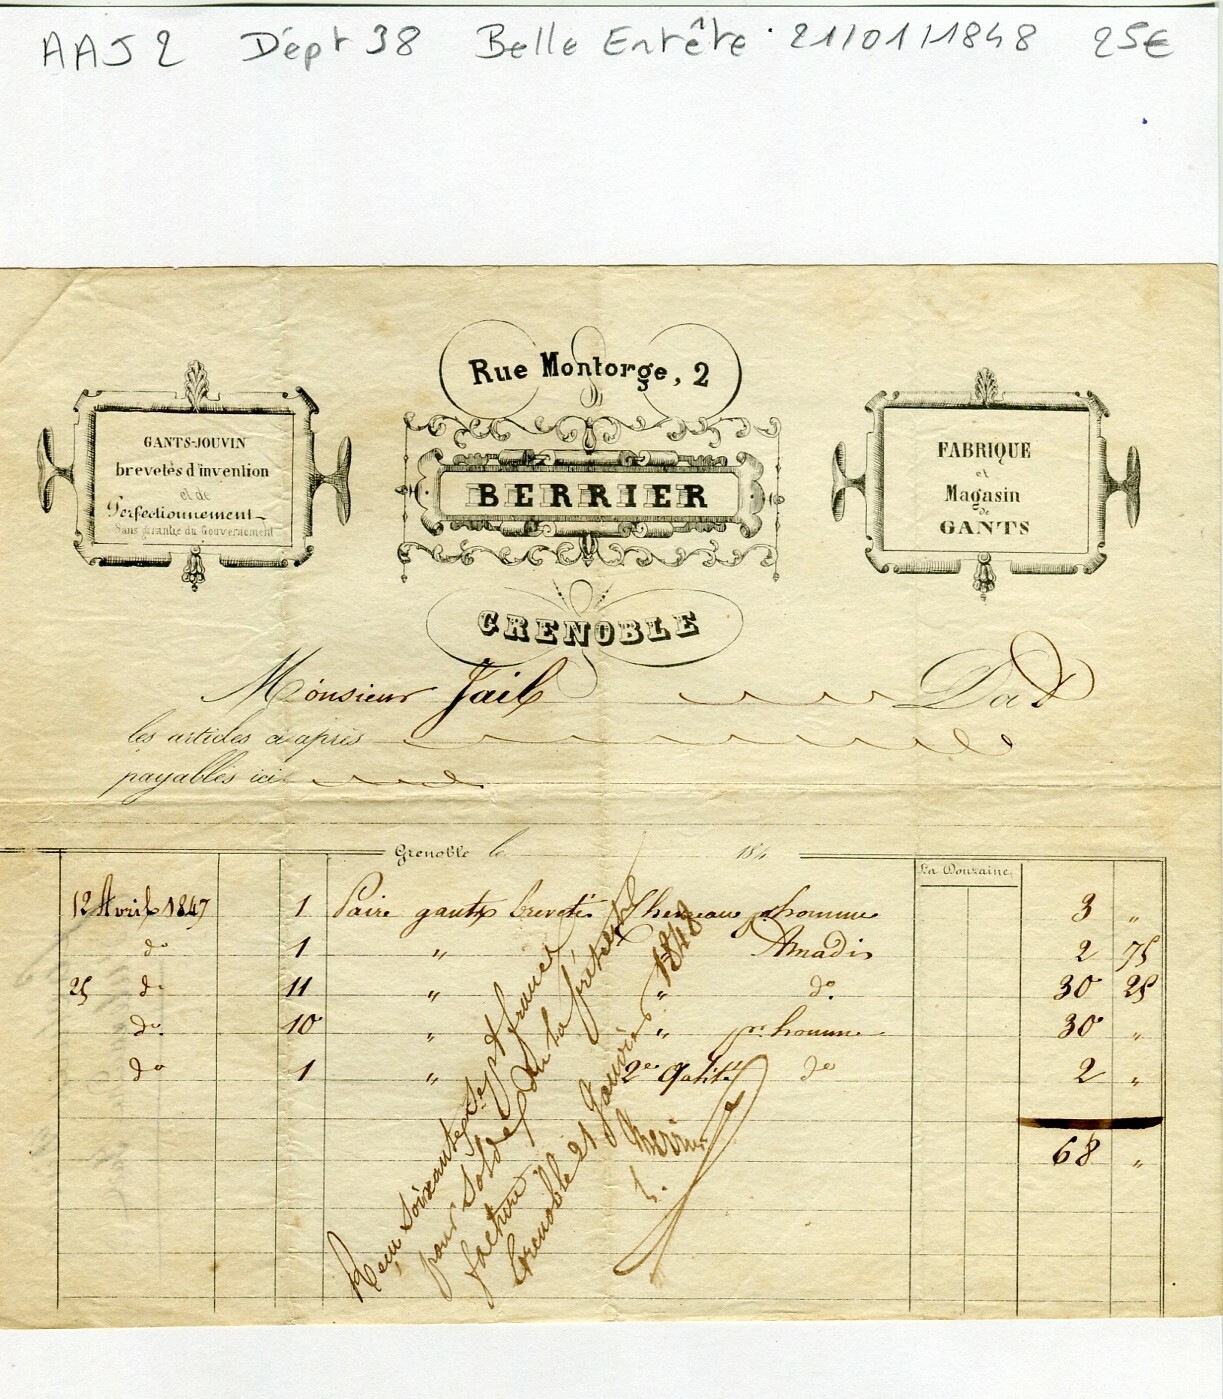 AAJ2 Dépt 38 Belle Entête 21/01/1848 25€
Rue Montorge, 2
GANTS-JOUVIN
brevetés d'invention
et de
Perfectionnement
Sans garantie du Gouvernement
BERRIER
FABRIQUE
et
Magasin
de
GANTS
GRENOBLE
Monsieur Jail Doit
les articles ci après
payables ici
Grenoble le 184
La Douzaine
12 Avril 1847 1 Paire gants brevetés Chevreau pr homme 3 "
do 1 " Amadis 2 75
25 do 11 " " do. 30 25
do. 10 " " pr homme 30 "
do 1 " 2e Qalité do 2 "
68 "
Reçu Soixante Sept francs
pour Solde de la présente
facture
Grenoble 21 Janvier 1848
Berrier